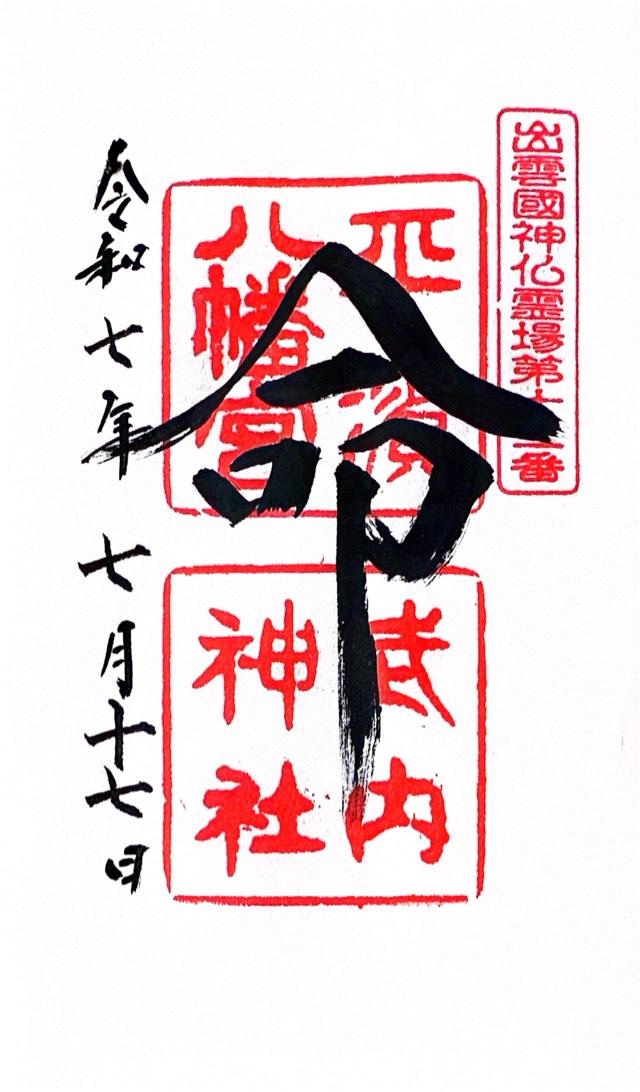 出雲國神仏霊場第十二番
平濱
八幡宮
命
武内
神社
令和七年 七月十七日